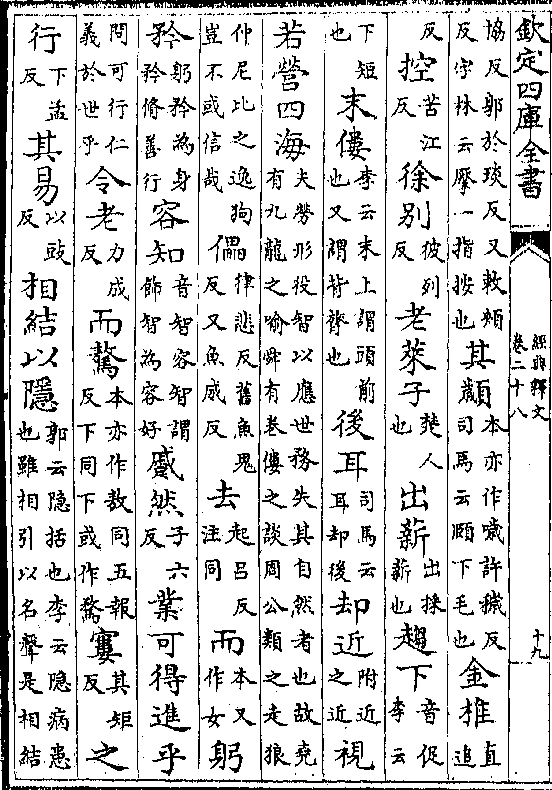 欽定四庫全書
經典釋文
卷二十八
十九
協反郭於琰反又敕頰
反字林云擪一指按也其顪本亦作噦許穢反司馬云頤下毛也金椎直追
反控苦江反徐別彼列反老萊子楚人也出薪出採薪也趨下音促李云
下短也末僂李云末上謂頭前也又謂背膂也後耳司馬云耳却後却近附近之近視
若營四海夫勞形役智以應世務失其自然者也故堯有亢龍之喻舜有卷僂之談周公類之走狼
仲尼比之逸狗豈不或信哉儡律悲反舊魚鬼反又魚威反去起呂反注同而本又作女躬
矜躬矜為身矜脩善行容知音智容智謂飾智為容好蹙然子六反業可得進乎
問可行仁義於世乎令老力成反而驁本亦作敖同五報反下同下或作驁窶其矩反之
行下孟反其易以豉反相結以隱郭云隐括也李云隐病患也雖相引以名聲是相結